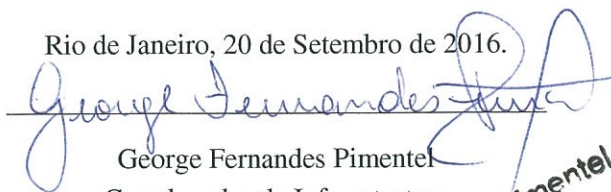 Rio de Janeiro, 20 de Setembro de 2016.
George Fernandes
George Fernandes Pimentel
mentel